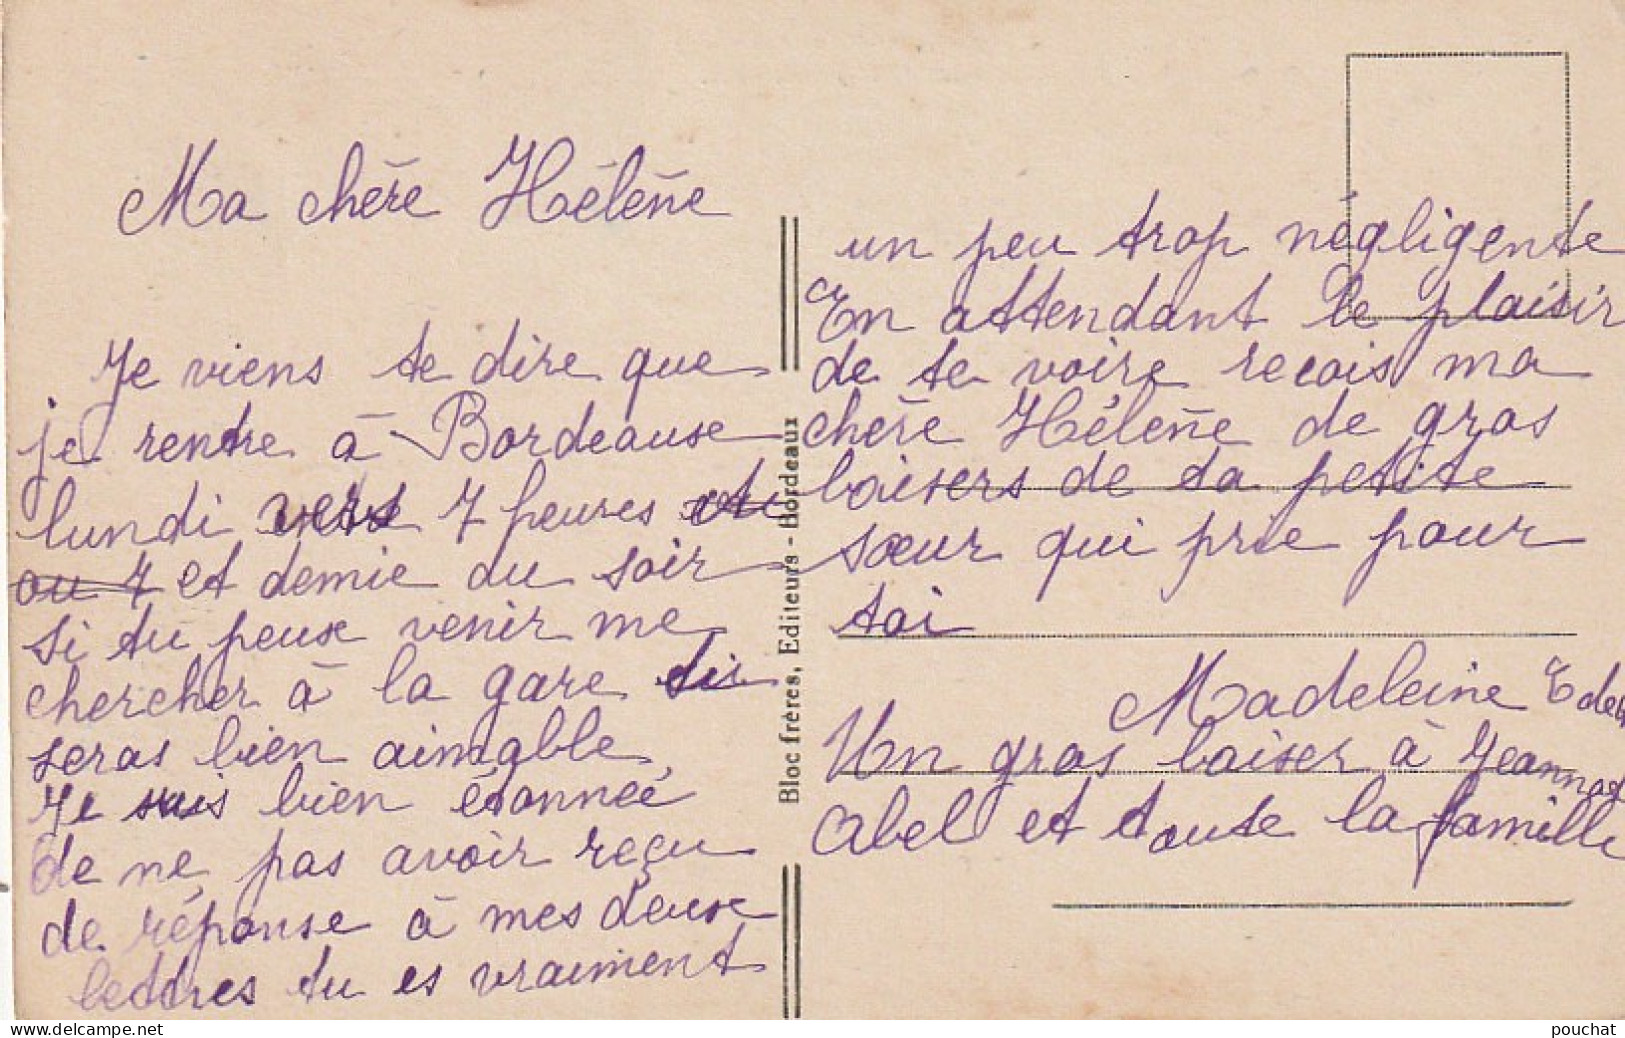 Ma chère Hélène
Je viens te dire que
je rentre à Bordeause
lundi vers 7 heures
ou 7 et demie du soir
si tu peux venir me
chercher à la gare
seras bien aimable
Je suis bien étonnée
de ne pas avoir reçu
de réponse à mes deux
lettres tu es vraiment
un peu trop négligente
En attendant le plaisir
de te voire recois ma
chère Hélène de gros
baisers de ta petite
sœur qui prie pour
toi
Madeleine
Un gros baiser à Jeannot
Abel et toute la famille
Bloc frères, Editeurs - Bordeaux
delcampe.net
pouchat